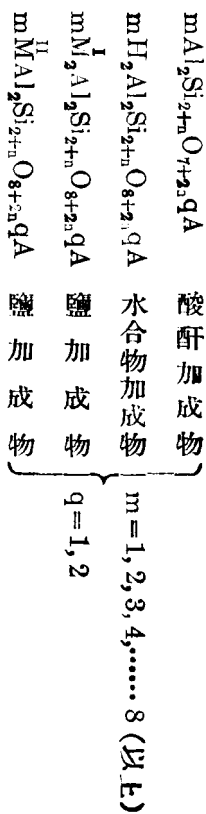 mAl₂Si₂₊ₙO₇₊₂ₙqA 酸酐加成物
mH₂Al₂Si₂₊ₙO₈₊₂ₙqA 水合物加成物
mMᴵ₂Al₂Si₂₊ₙO₈₊₂ₙqA 鹽加成物
mMᴵᴵAl₂Si₂₊ₙO₈₊₂ₙqA 鹽加成物
m=1, 2, 3, 4,……8(以上)
q=1, 2